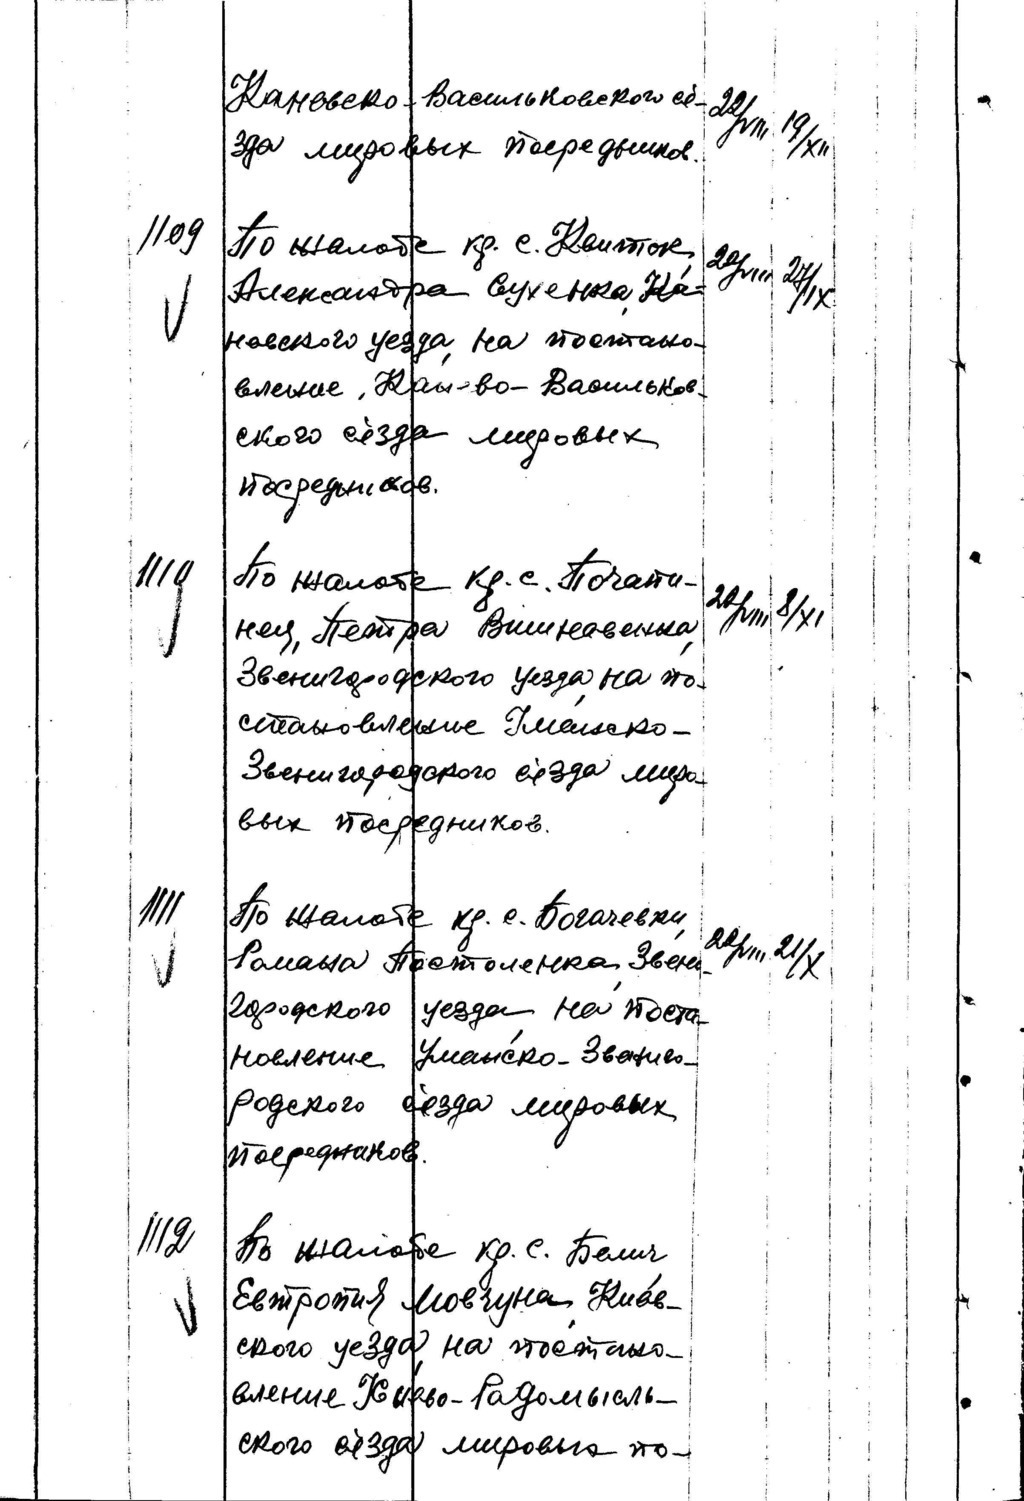 Каневско-Васильковского съе- 22/VIII 19/XII
зда мировых посредников.
1109 По жалобе кр. с. Квиток,
Александра Сухенка, Ка- 22/VIII 27/IX
невского уезда, на постано-
вление Кан-во-Васильков-
ского съезда мировых
посредников.
1110 По жалобе кр. с. Почапи-
нец, Петра Вишновенка, 22/VIII 8/XI
Звенигородского уезда, на по-
становление Уманско-
Звенигородского съезда миро-
вых посредников.
1111 По жалобе кр. с. Богачевки,
Романа Постоленка, Звени- 22/VIII 21/X
городского уезда, на поста-
новление Уманско-Звениго-
родского съезда мировых
посредников.
1112 По жалобе кр. с. Белич
Евтропия Мовчуна, Киев-
ского уезда, на постано-
вление Киево-Радомысль-
ского съезда мировых по-